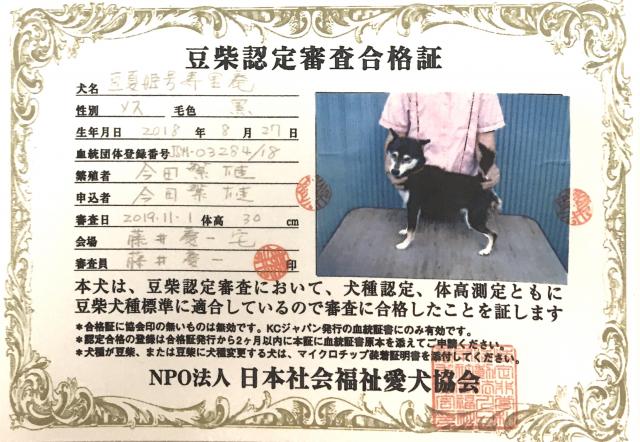 豆柴認定審査合格証
犬名
性別 メス 毛色 黒
生年月日 2018 年 8 月 27 日
血統団体登録番号 JSH-03284/18
繁殖者 今田
申込者 今田
審査日 2019.11.1 体高 30 cm
会場 藤井慶一宅
審査員 藤井慶一 印
本犬は、豆柴認定審査において、犬種認定、体高測定ともに
豆柴犬種標準に適合しているので審査に合格したことを証します
*合格証に協会印の無いものは無効です。KCジャパン発行の血統証書にのみ有効です。
*認定合格の登録は合格証発行から2ヶ月以内に本証に血統証書原本を添えてご申請ください。
*犬種が豆柴、または豆柴に犬種変更する犬は、マイクロチップ装着証明書を添付してください。
NPO法人 日本社会福祉愛犬協会